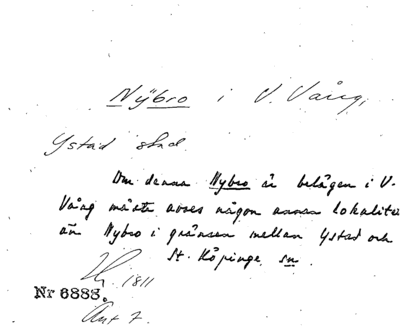 Nybro i V. Vång.
Ystad stad
Om denna Nybro är belägen i V.
Vång måste avses någon annan lokalitet
än Nybro i gränsen mellan Ystad och
St. Köpinge sn.
1811
Nr 6888.